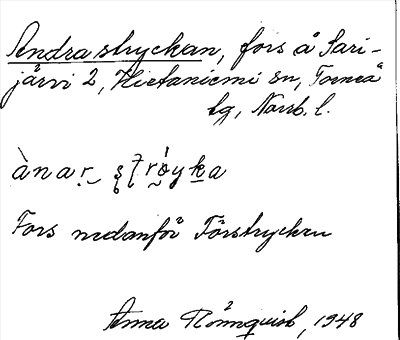 Andra stryckan, fors å Sari-
järvi 2, Hietaniemi sn, Torneå
tg, Norrb. l.
ànar̥ ʂʈrøyka
Fors nedanför Förstrycken
Anna Rönnquist, 1948